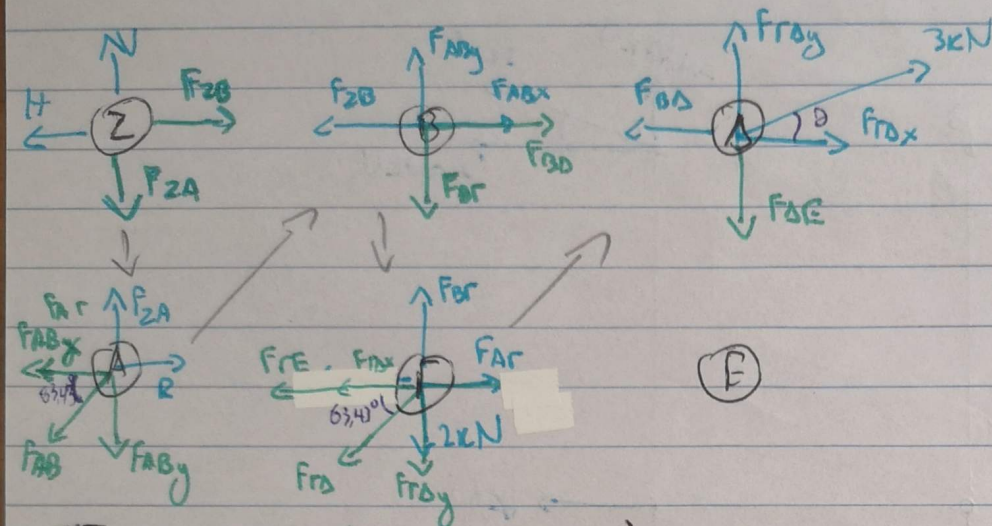 N
H
Z
FZB
FZA
FABy
FZB
B
FABx
FBΔ
FBΓ
FΓΔy
3kN
FBΔ
Δ
θ
FΓΔx
FΔE
FAΓ
FZA
FABx
A
R
63,43°
FAB
FABy
FBΓ
FΓE
FΓΔx
Γ
FAΓ
63,43°
2kN
FΓΔ
FΓΔy
E